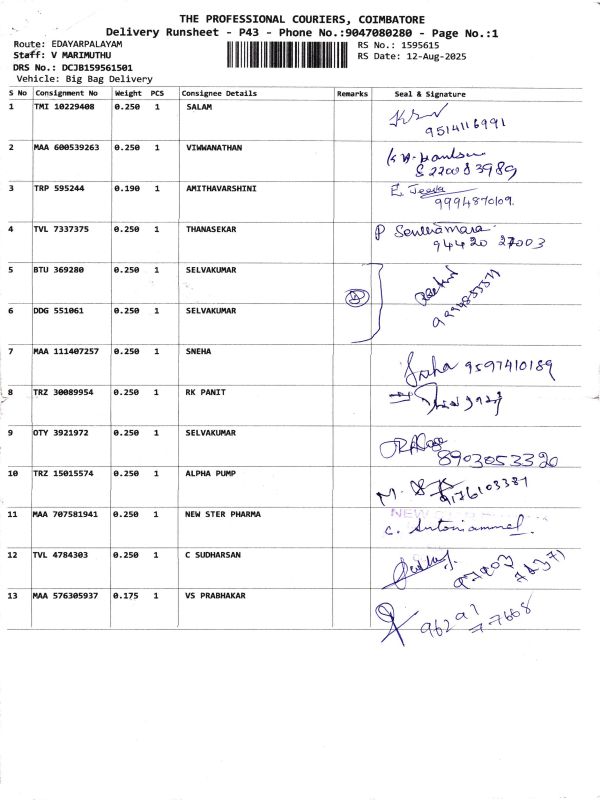 THE PROFESSIONAL COURIERS, COIMBATORE
Delivery Runsheet - P43 - Phone No.:9047080280 - Page No.:1
Route: EDAYARPALAYAM
RS No.: 1595615
Staff: V MARIMUTHU
RS Date: 12-Aug-2025
DRS No.: DCJB159561501
Vehicle: Big Bag Delivery
S No Consignment No Weight PCS Consignee Details Remarks Seal & Signature
1 TMI 10229408 0.250 1 SALAM
9514116991
2 MAA 600539263 0.250 1 VIWWANATHAN
3 TRP 595244 0.190 1 AMITHAVARSHINI E. Jeeva
9994870109.
4 TVL 7337375 0.250 1 THANASEKAR P
94420 27003
5 BTU 369280 0.250 1 SELVAKUMAR
6 DDG 551061 0.250 1 SELVAKUMAR
7 MAA 111407257 0.250 1 SNEHA Sneha 9597410189
8 TRZ 30089954 0.250 1 RK PANIT
9 OTY 3921972 0.250 1 SELVAKUMAR
8903053320
10 TRZ 15015574 0.250 1 ALPHA PUMP M.
9176103381
11 MAA 707581941 0.250 1 NEW STER PHARMA NEW
C. Antoniammal.
12 TVL 4784303 0.250 1 C SUDHARSAN
13 MAA 576305937 0.175 1 VS PRABHAKAR
96297
77668